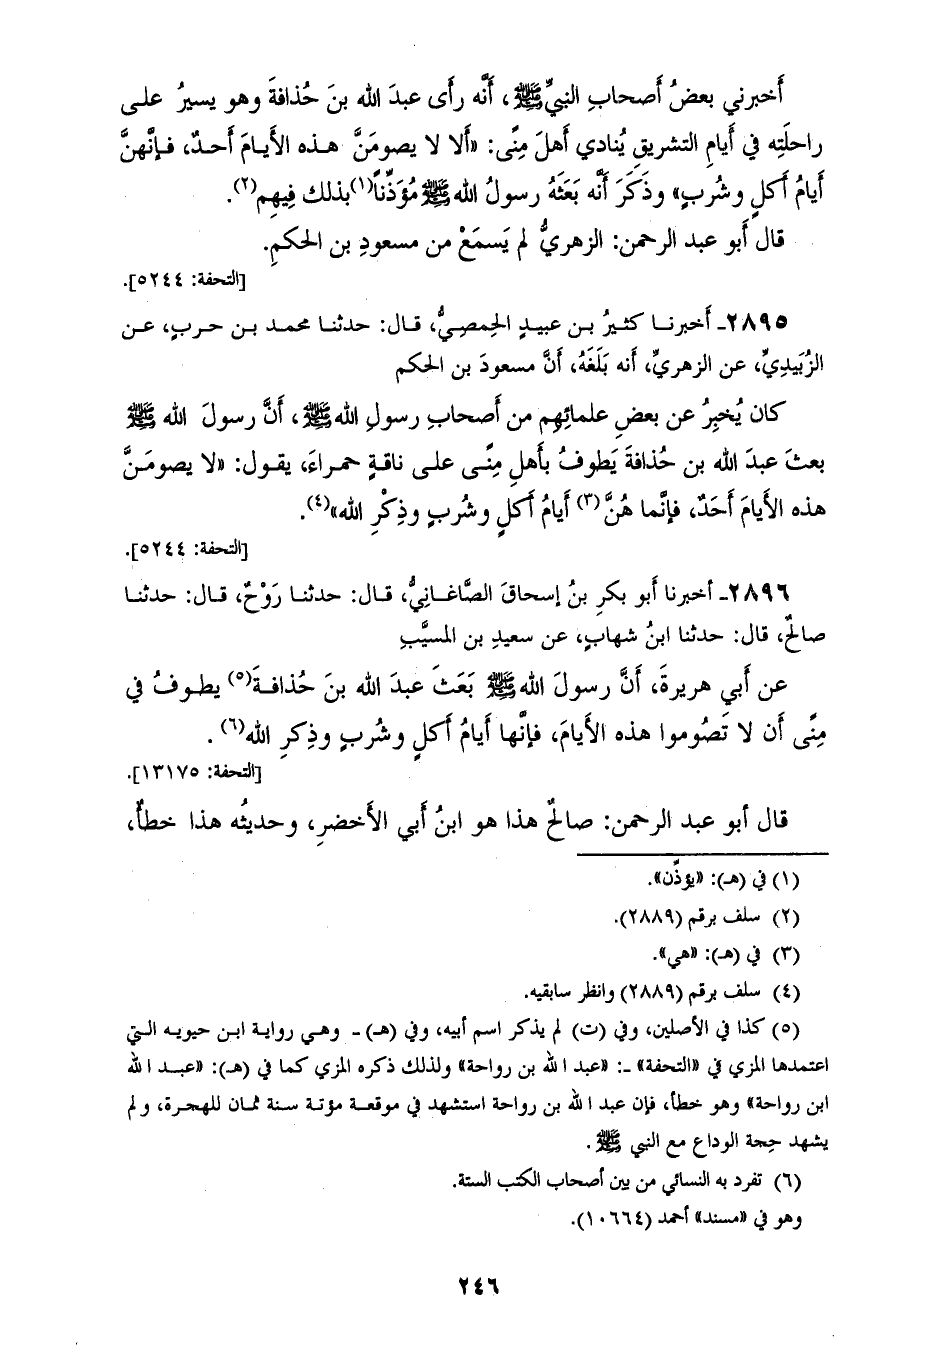 أَخبرني بعضُ أَصحابِ النبيِّ ﷺ، أَنَّه رأَى عبدَ الله بنَ حُذافةَ وهو يسيرُ على
راحلَتِه في أَيامِ التشريقِ يُنادي أَهلَ مِنًى: «أَلا لا يصومَنَّ هذه الأَيامَ أَحدٌ، فإنَّهنَّ
أَيامُ أَكلٍ وشُربٍ» وذَكَرَ أَنَّه بَعَثَهُ رسولُ الله ﷺ مُؤَذِّناً(١) بذلك فِيهِم(٢).
قال أَبو عبد الرحمن: الزهريُّ لم يَسمَعْ من مسعودِ بن الحكمِ.
[التحفة: ٥٢٤٤].
٢٨٩٥ـ أَخبرنا كثيرُ بن عبيدٍ الحِمصِيُّ، قال: حدثنا محمد بن حربٍ، عن
الزُّبَيدِيِّ، عن الزهريِّ، أَنه بَلَغَهُ، أَنَّ مسعودَ بن الحكم
كان يُخبِرُ عن بعضِ علمائِهم من أَصحابِ رسولِ الله ﷺ، أَنَّ رسولَ الله ﷺ
بعثَ عبدَ الله بن حُذافةَ يَطوفُ بأَهلِ مِنًى على ناقةٍ حمراءَ، يقول: «لا يصومَنَّ
هذه الأَيامَ أَحَدٌ، فإنَّما هُنَّ(٣) أَيامُ أَكلٍ وشُربٍ وذِكْرِ الله»(٤).
[التحفة: ٥٢٤٤].
٢٨٩٦ـ أخبرنا أَبو بكرِ بنُ إسحاقَ الصَّاغانِيُّ، قال: حدثنا رَوْحٌ، قال: حدثنا
صالحٌ، قال: حدثنا ابنُ شهابٍ، عن سعيدِ بن المسيَّبِ
عن أَبي هريرةَ، أَنَّ رسولَ الله ﷺ بَعَثَ عبدَ الله بنَ حُذافةَ(٥) يطوفُ في
مِنًى أَن لا تَصُوموا هذه الأَيامَ، فإنَّها أَيامُ أَكلٍ وشُربٍ وذِكرِ الله(٦).
[التحفة: ١٣١٧٥].
قال أبو عبد الرحمن: صالحٌ هذا هو ابنُ أَبي الأَخضرِ، وحديثُه هذا خطأٌ،
(١) في (هـ): «يؤذِّن».
(٢) سلف برقم (٢٨٨٩).
(٣) في (هـ): «هي».
(٤) سلف برقم (٢٨٨٩) وانظر سابقيه.
(٥) كذا في الأصلين، وفي (ت) لم يذكر اسم أبيه، وفي (هـ) ـ وهي رواية ابن حيويه التي
اعتمدها المزي في «التحفة» ـ: «عبد الله بن رواحة» ولذلك ذكره المزي كما في (هـ): «عبد الله
ابن رواحة» وهو خطأ، فإن عبد الله بن رواحة استشهد في موقعة مؤتة سنة ثمان للهجرة، ولم
يشهد حِجة الوداع مع النبي ﷺ.
(٦) تفرد به النسائي من بين أصحاب الكتب الستة.
وهو في «مسند» أحمد (١٠٦٦٤).
٢٤٦